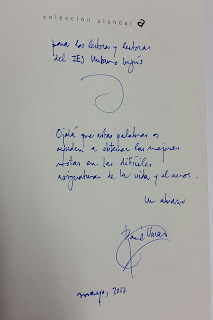 colección alandar a
para los lectores y lectoras
del IES
Ojalá que estas palabras os
ayuden a obtener las mejores
notas en las difíciles
asignaturas de la vida y el amor.
Un abrazo
mayo, 2007